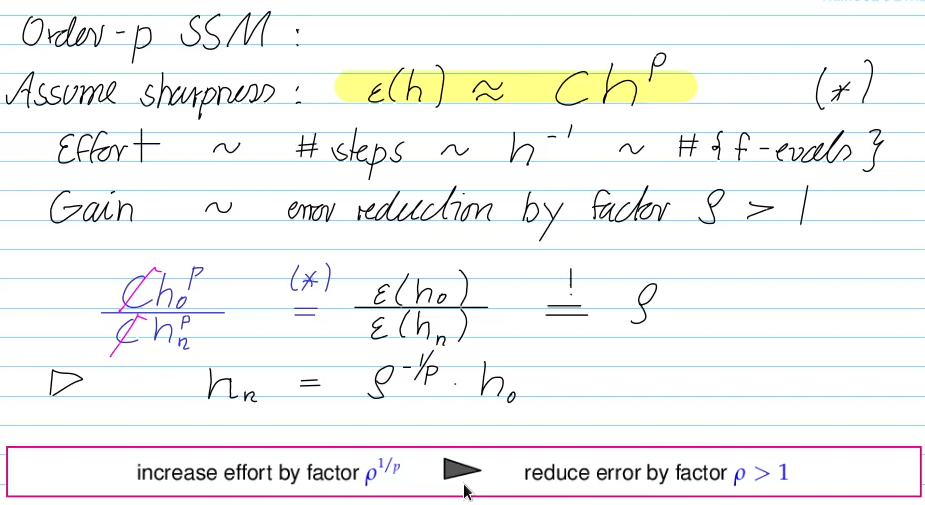 Order-p SSM :
Assume sharpness : ε(h) ≈ Ch^p (*)
Effort ~ # steps ~ h^-1 ~ #{f-evals}
Gain ~ error reduction by factor ρ > 1
Ch_0^p / Ch_n^p (*)= ε(h_0) / ε(h_n) != ρ
▷ h_n = ρ^-1/p · h_0
increase effort by factor ρ^1/p ▶ reduce error by factor ρ > 1